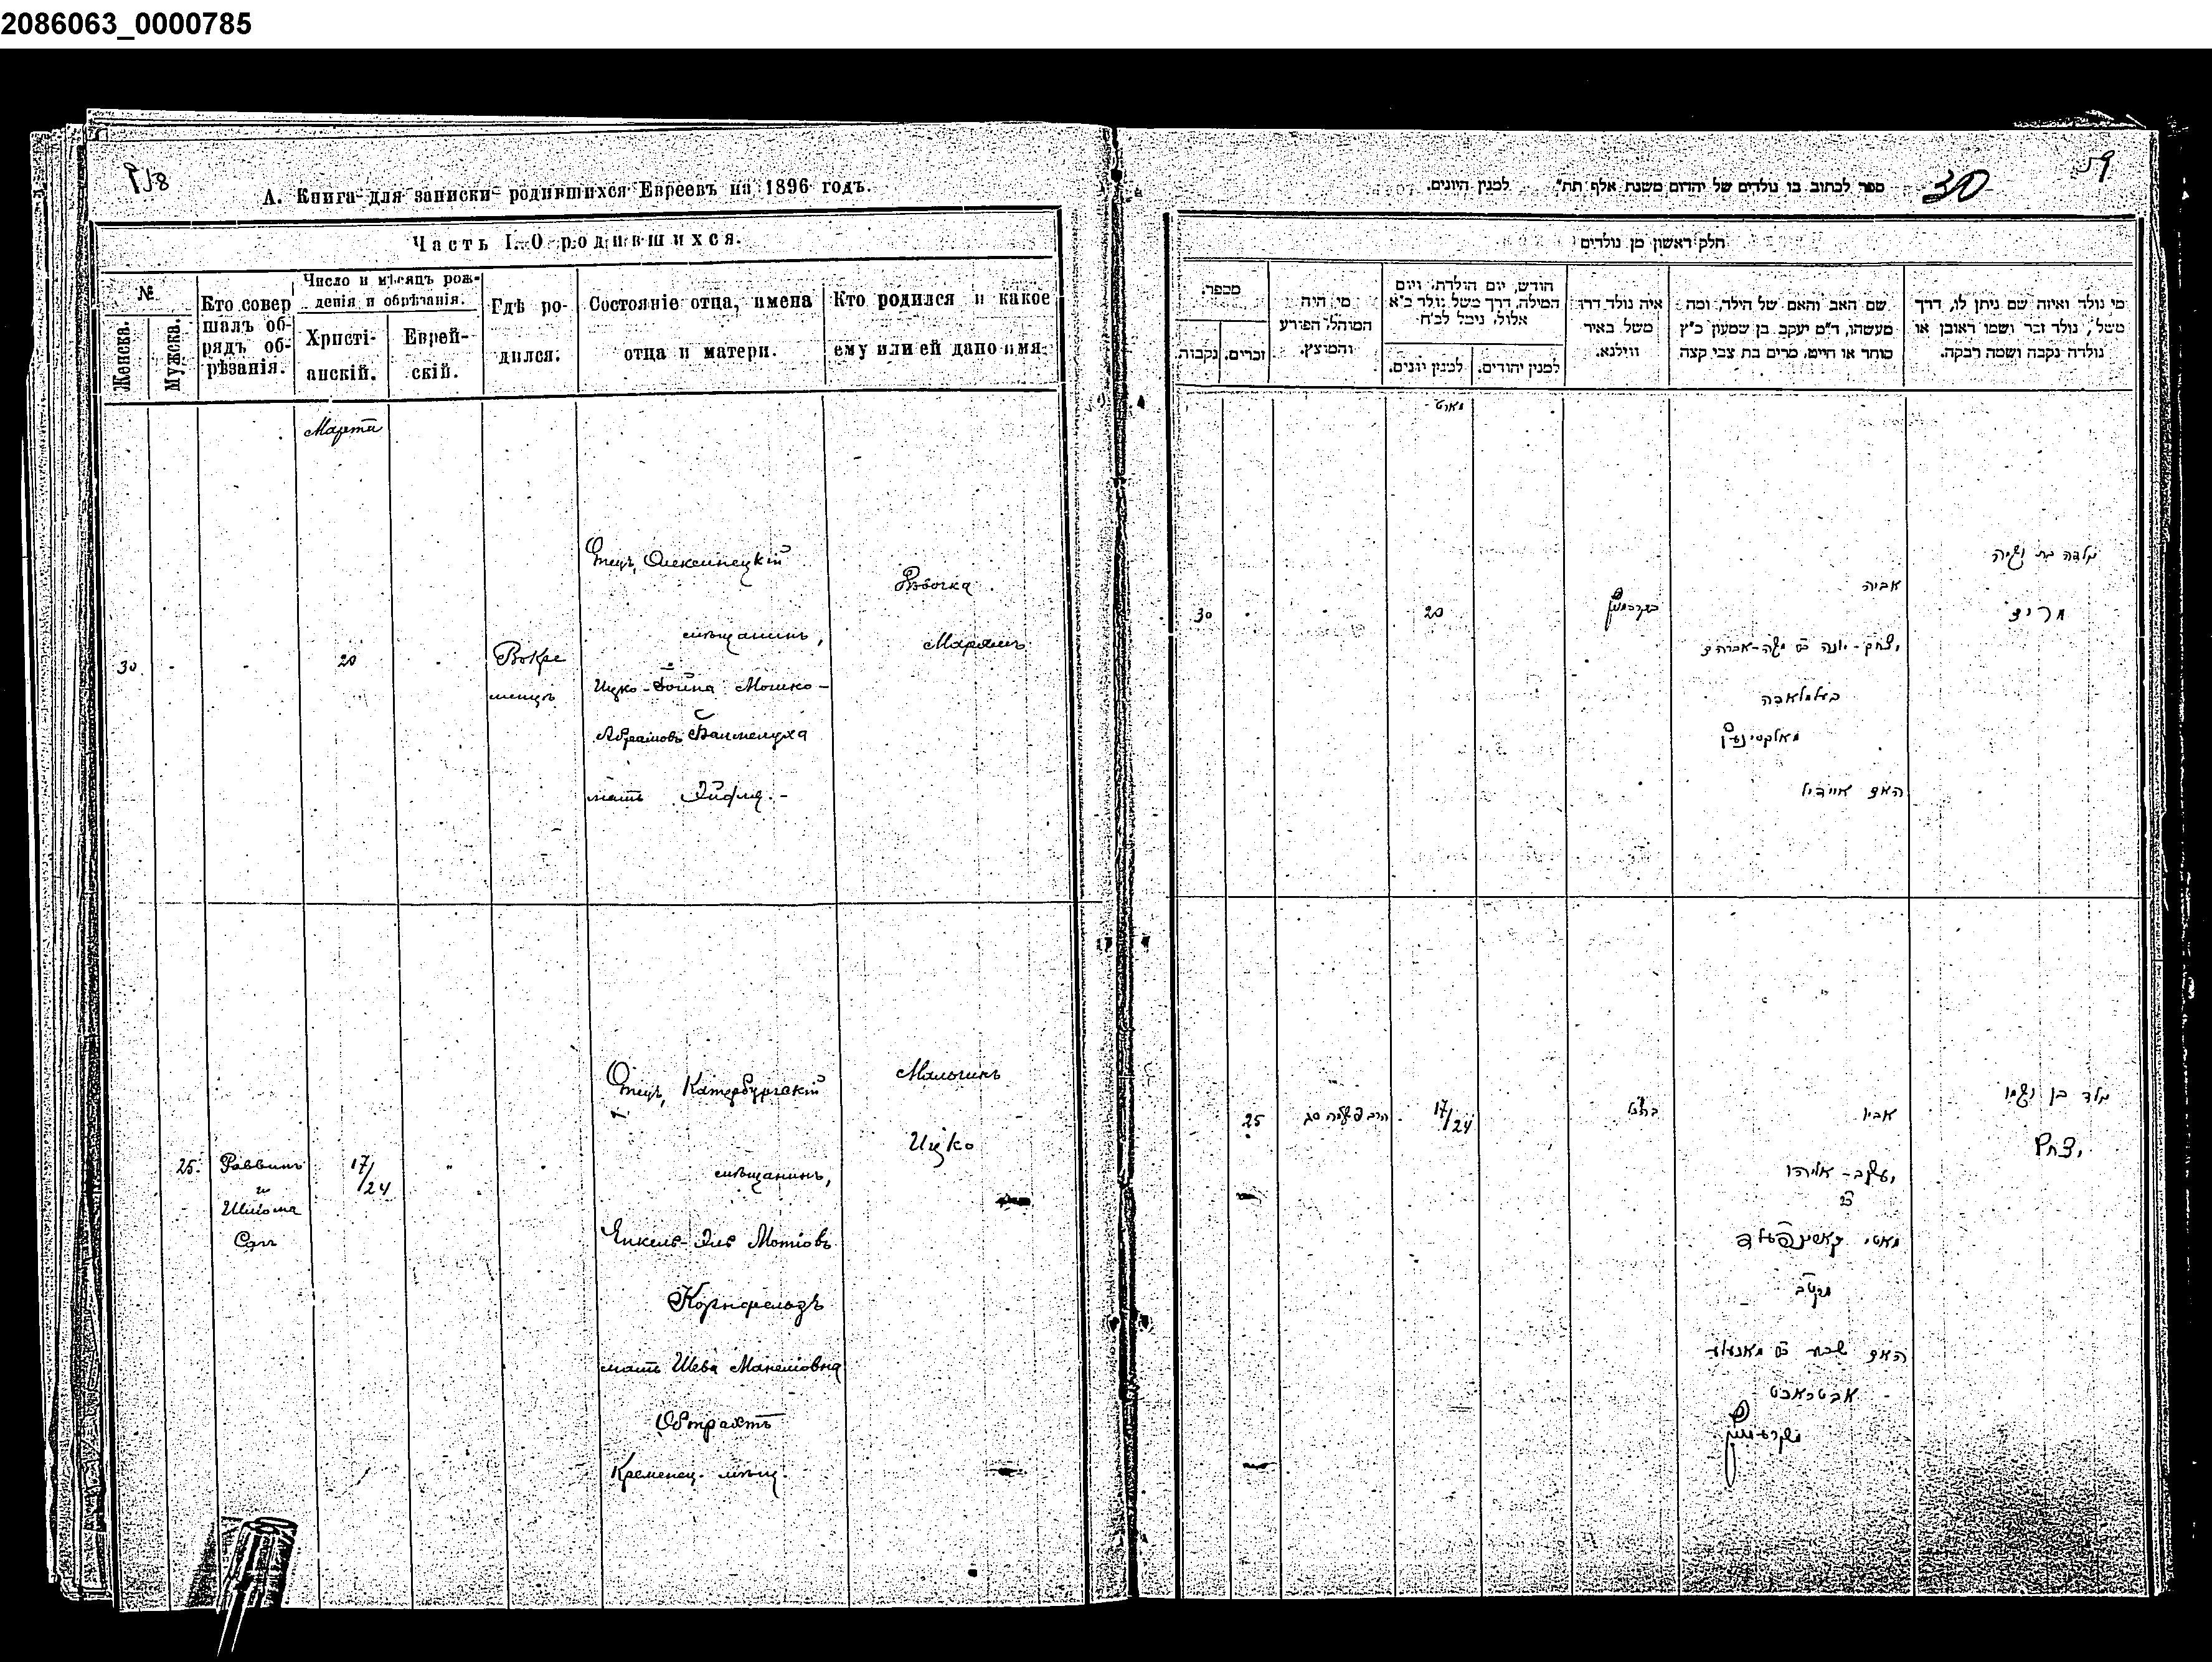 2086063_0000785
А. Книга для записки родившихся Евреевъ на 1896 годъ.
Часть I. О родившихся.
№
Женска.
Мужска.
Кто совер
шалъ об-
рядъ об-
рѣзанія.
Число и мѣсяцъ рож-
денія и обрѣзанія.
Христі-
анскій.
Еврей-
скій.
Гдѣ ро-
дился.
Состояніе отца, имена
отца и матери.
Кто родился и какое
ему или ей дано имя.
Марта
30
20
Вокре
менцѣ
Отецъ, Олексинецкій
мѣщанинъ,
Ицко-Іойна Мошко-
Абрамовъ
мать
Дѣвочка
Маріамъ
25.
Раввинъ
и
17/24
Отецъ, Катербургскій
мѣщанинъ,
Янкель-Эль Мотіовъ
Корнфельдъ
мать Шева Манеліовна
Обтрахтъ
Кременец. мѣщ.
Мальчикъ
Ицко
59
30
ספר לכתוב בו נולדים של יהדום משנת אלף תת״ למנין היונים.
חלק ראשון מן נולדים
מי נולד ואיזה שם ניתן לו, דרך
משל, נולד זכר ושמו ראובן או
נולדה נקבה ושמה רבקה.
שם האב והאם של הילד, ומה
מעשהו, ד״מ יעקב בן שמעון כ״ץ
סוחר או חייט, מרים בת צבי קצה
איה נולד דרך
משל באיר
ווילנא.
חודש, יום הולדת, ויום
המילה, דרך משל נולד כ״א
אלול, נימל לכ״ח
למנין יהודים.
למנין יונים.
מי היה
המוהל, הפורע
והמוצץ.
מספר.
זכרים.
נקבות.
מארט
ילדה בת ושמה
מרים
אביה
יצחק-יונה
משה-אברהם
האם
20
30
ילד בן ושמו
יצחק
אביו
יעקב-אליהו
מאטי קארנפעלד
האם שבע
אבטראכט
17/24
25